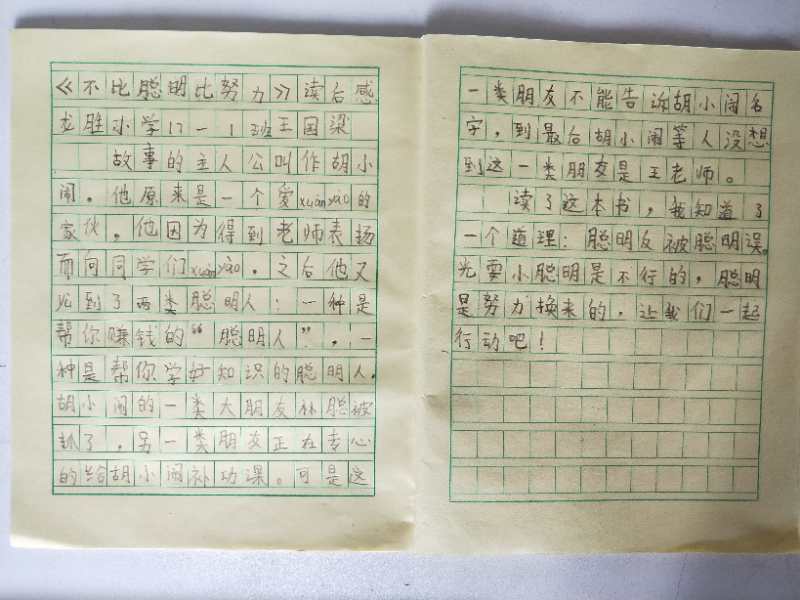 《不比聪明比努力》读后感
龙胜小学17-1班王国梁
故事的主人公叫作胡小
闹。他原来是一个爱xuànyào的
家伙，他因为得到老师表扬
而向同学们xuànyào。之后他又
见到了两类聪明人：一种是
帮你赚钱的“聪明人”，一
种是帮你学好知识的聪明人。
胡小闹的一类大朋友补聪被
抓了，另一类朋友正在专心
的给胡小闹补功课。可是这
一类朋友不能告诉胡小闹名
字，到最后胡小闹等人没想
到这一类朋友是王老师。
读了这本书，我知道了
一个道理：聪明反被聪明误。
光耍小聪明是不行的，聪明
是努力换来的，让我们一起
行动吧！